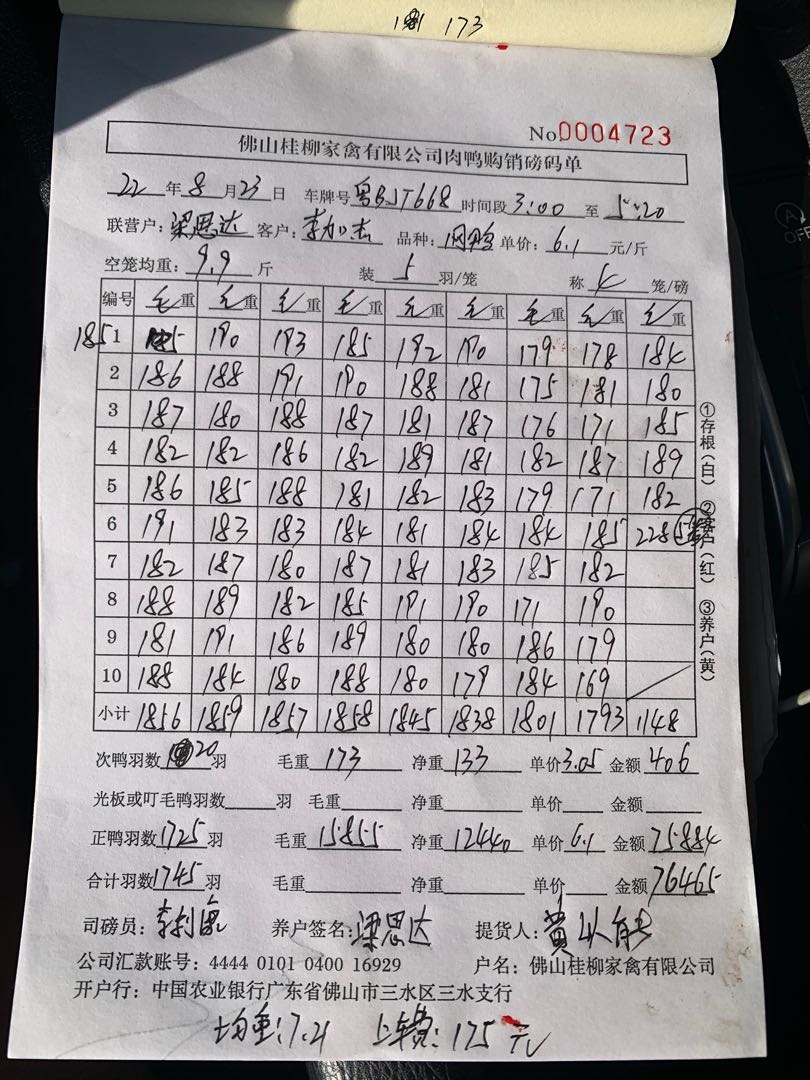 173
No.0004723
佛山桂柳家禽有限公司肉鸭购销磅码单
22 年 8 月 23 日 车牌号 粤BJT668 时间段 3:00 至 5:20
联营户: 梁思达 客户: 李加志 品种: 单价: 6.1 元/斤
空笼均重: 9.9 斤 装 5 羽/笼 称 4 笼/磅
编号 毛重 毛重 毛重 毛重 毛重 毛重 毛重 毛重 毛重
185 1 190 193 185 192 190 179 178 184
2 186 188 191 190 188 181 175 181 180
3 187 180 188 187 181 187 176 171 185
4 182 182 186 182 189 181 182 187 189
5 186 185 188 181 182 183 179 171 182
6 191 183 183 184 181 184 184 185 228
7 182 187 180 187 181 183 185 182
8 188 189 182 185 191 190 171 190
9 181 191 186 189 180 180 186 179
10 188 184 180 188 180 179 184 169
小计 1856 1859 1857 1858 1845 1838 1801 1793 1148
①存根(白) ②客户(红) ③养户(黄)
次鸭羽数 20 羽 毛重 173 净重 133 单价 3.05 金额 406
光板或叮毛鸭羽数 羽 毛重 净重 单价 金额
正鸭羽数 1725 羽 毛重 15855 净重 12440 单价 6.1 金额 75884
合计羽数 1745 羽 毛重 净重 单价 金额 76465
司磅员: 养户签名: 梁思达 提货人:
公司汇款账号: 4444 0101 0400 16929 户名: 佛山桂柳家禽有限公司
开户行: 中国农业银行广东省佛山市三水区三水支行
均重: 7.21 上车费: 175 元